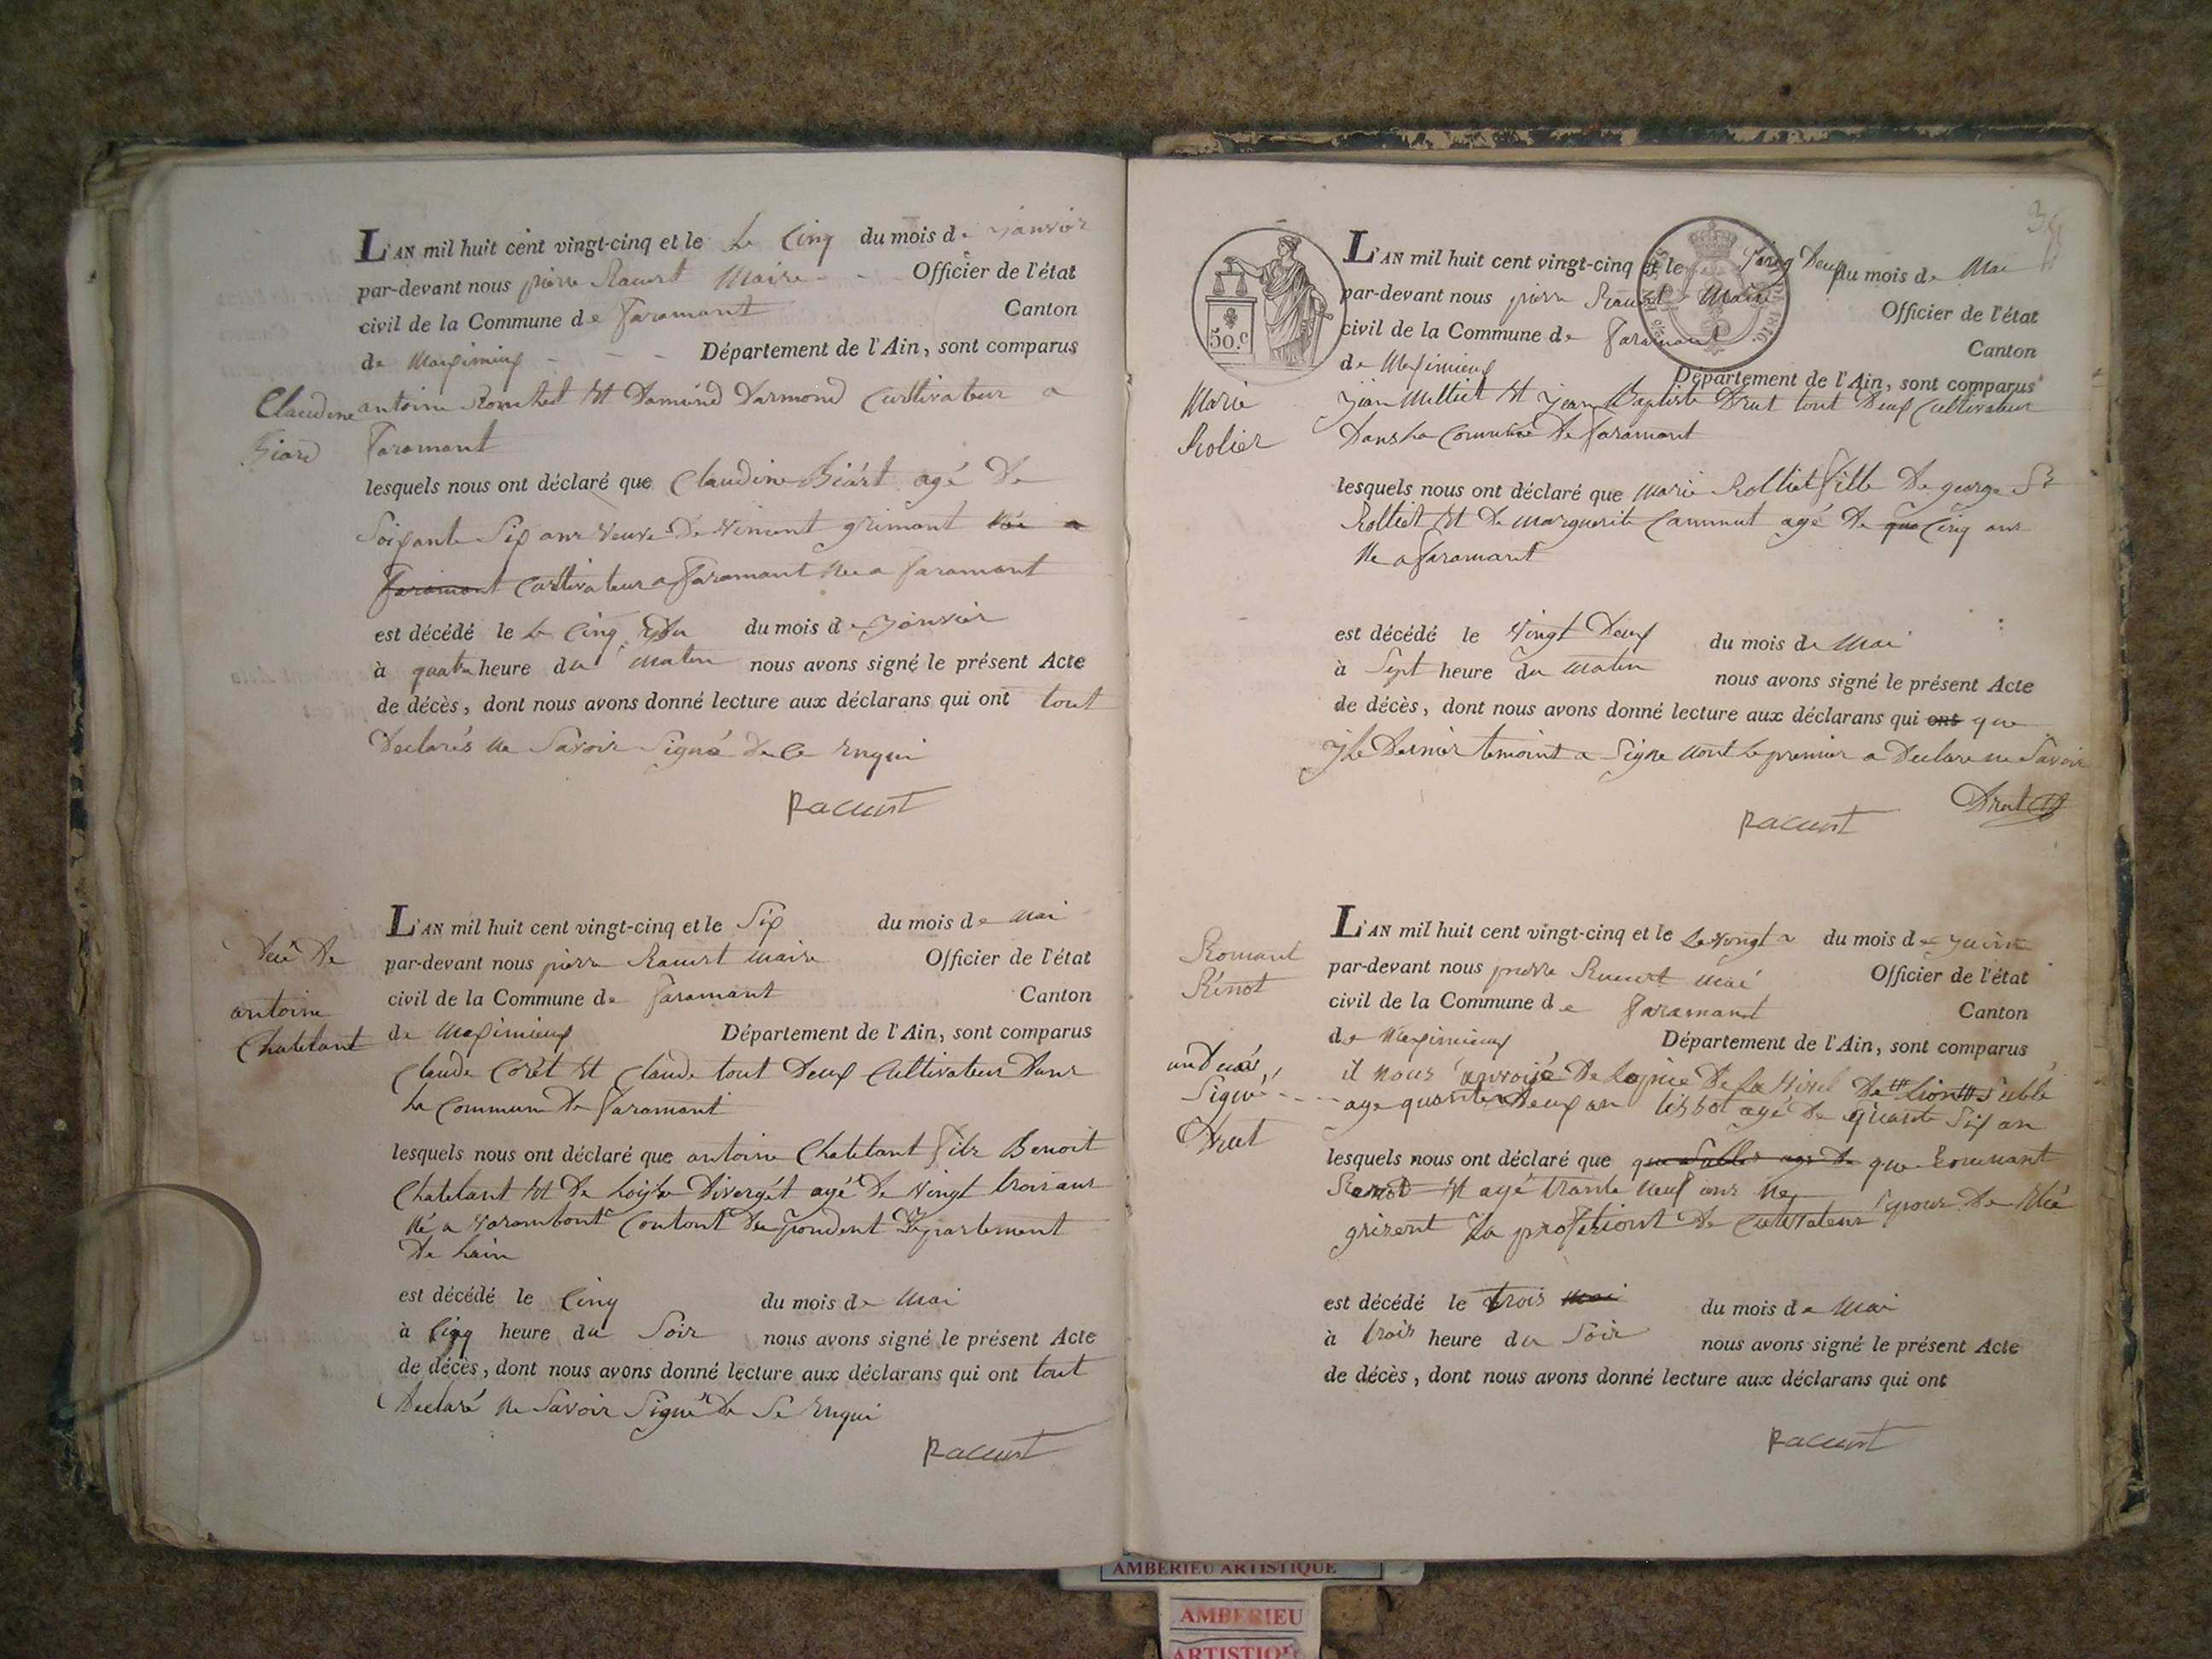 L'AN mil huit cent vingt-cinq et le Le Cinq du mois de janvier
par-devant nous pierre Racurt Maire Officier de l'état
civil de la Commune de faramant Canton
de Maximieux Département de l'Ain, sont comparus
Claudine
Biard
antoine Rom et Darmond Cultivateur a
faramant
lesquels nous ont déclaré que Claudine Biárt agé De
Soixante Six ans veuve De vincent grimont née a
faramant Cultivateur a faramant Née a faramant
est décédé le Le Cinq du mois de janvier
à quatre heure du Matin nous avons signé le présent Acte
de décès, dont nous avons donné lecture aux déclarans qui ont tout
Declarés ne Savoir Signé de Ce Enqui
Racurt
L'AN mil huit cent vingt-cinq et le Six du mois de Mai
par-devant nous pierre Racurt Maire Officier de l'état
civil de la Commune de faramant Canton
de Maximieux Département de l'Ain, sont comparus
De
antoine
Chatelant
Claude Corét et Claude tout Deux Cultivateur Dans
La Commune De faramant
lesquels nous ont déclaré que antoine Chatelant fils Benoit
Chatelant et De Divergét agé De vingt trois ans
Né a varambont Departement
De Lain
est décédé le Cinq du mois de Mai
à Cinq heure du Soir nous avons signé le présent Acte
de décès, dont nous avons donné lecture aux déclarans qui ont tout
Declaré ne Savoir Signé De Se Enqui
Racurt
50.c
L'AN mil huit cent vingt-cinq et le Vingt Deux du mois de Mai
par-devant nous pierre Racurt Maire
civil de la Commune de faramant Officier de l'état
de Meximieux Canton
Département de l'Ain, sont comparus
Marie
Rolier
jean Milliet et jean Baptiste Drut tout Deux Cultivateur
Dans La Commune De faramant
lesquels nous ont déclaré que Marie Rolliet fille De george
Rolliet et De Marguerite Cammut agé De qua Cinq ans
Ne a faramant
est décédé le Vingt Deux du mois de Mai
à Sept heure du Matin nous avons signé le présent Acte
de décès, dont nous avons donné lecture aux déclarans qui ont que
Le Dernier temoint a Signe Le premier a Declare ne Savoir
Drut
Racurt
L'AN mil huit cent vingt-cinq et le Le vingt du mois de juin
par-devant nous pierre Racurt Officier de l'état
civil de la Commune de faramant Canton
de Meximieux Département de l'Ain, sont comparus
Romant
Rénot
Signé
Drut
il nous envoijé De De La De Lion
age quarante Deux an agé De Six an
lesquels nous ont déclaré que que Romant
et agé trante neuf ans Ne Epoux De
grisent La profesiont De Cultivateur
est décédé le trois Mai du mois de Mai
à trois heure du Soir nous avons signé le présent Acte
de décès, dont nous avons donné lecture aux déclarans qui ont
Racurt
AMBERIEU ARTISTIQUE
AMBERIEU
ARTISTIQUE